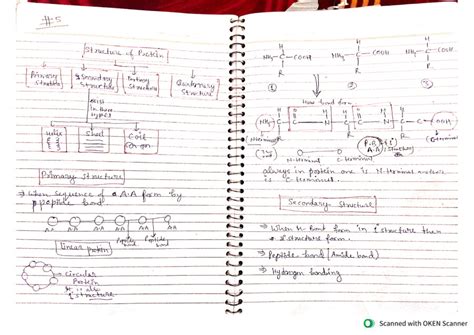 #5
Structure of Protein
Primary Structure
Secondary Structure
Tertiary Structure
Quaternary Structure
exist in three types
Helix
Sheet
Coil
Primary Structure
→ When sequence of A.A form by peptide bond.
A.A A.A A.A A.A A.A A.A
Peptide bond
Peptide bond
Linear protein
→ Circular Protein is also 1° structure
H H H
NH2 C COOH NH2 C COOH NH2 C COOH
R R R
① ② ③
NH2 C C N C C N C C OOH
N-terminal
C-terminal
always in protein one is N-terminal
is C-terminal.
Secondary Structure
→ When H Bond form in 1° structure then 2° structure form.
→ Peptide bond (Amide bond)
→ Hydrogen bonding
Scanned with OKEN Scanner